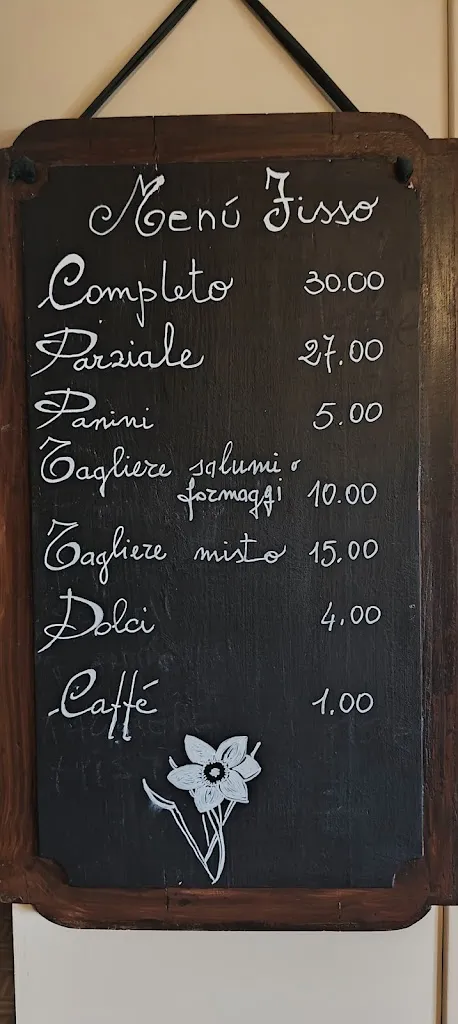 Menú Fisso
Completo 30.00
Parziale 27.00
Panini 5.00
Tagliere salumi o
formaggi 10.00
Tagliere misto 15.00
Dolci 4.00
Caffé 1.00